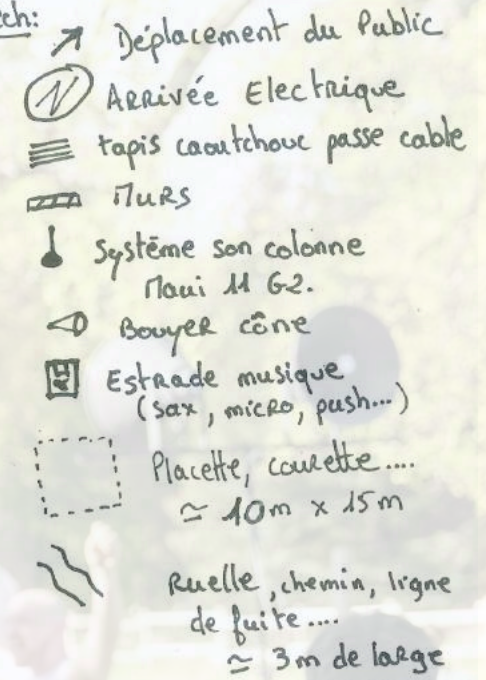 ech:
Déplacement du Public
Arrivée Electrique
tapis caoutchouc passe cable
Murs
Système son colonne
Maui 11 G2.
Bouyer cône
Estrade musique
(sax, micro, push...)
Placette, courette....
≃ 10m x 15m
Ruelle, chemin, ligne
de fuite....
≃ 3m de large